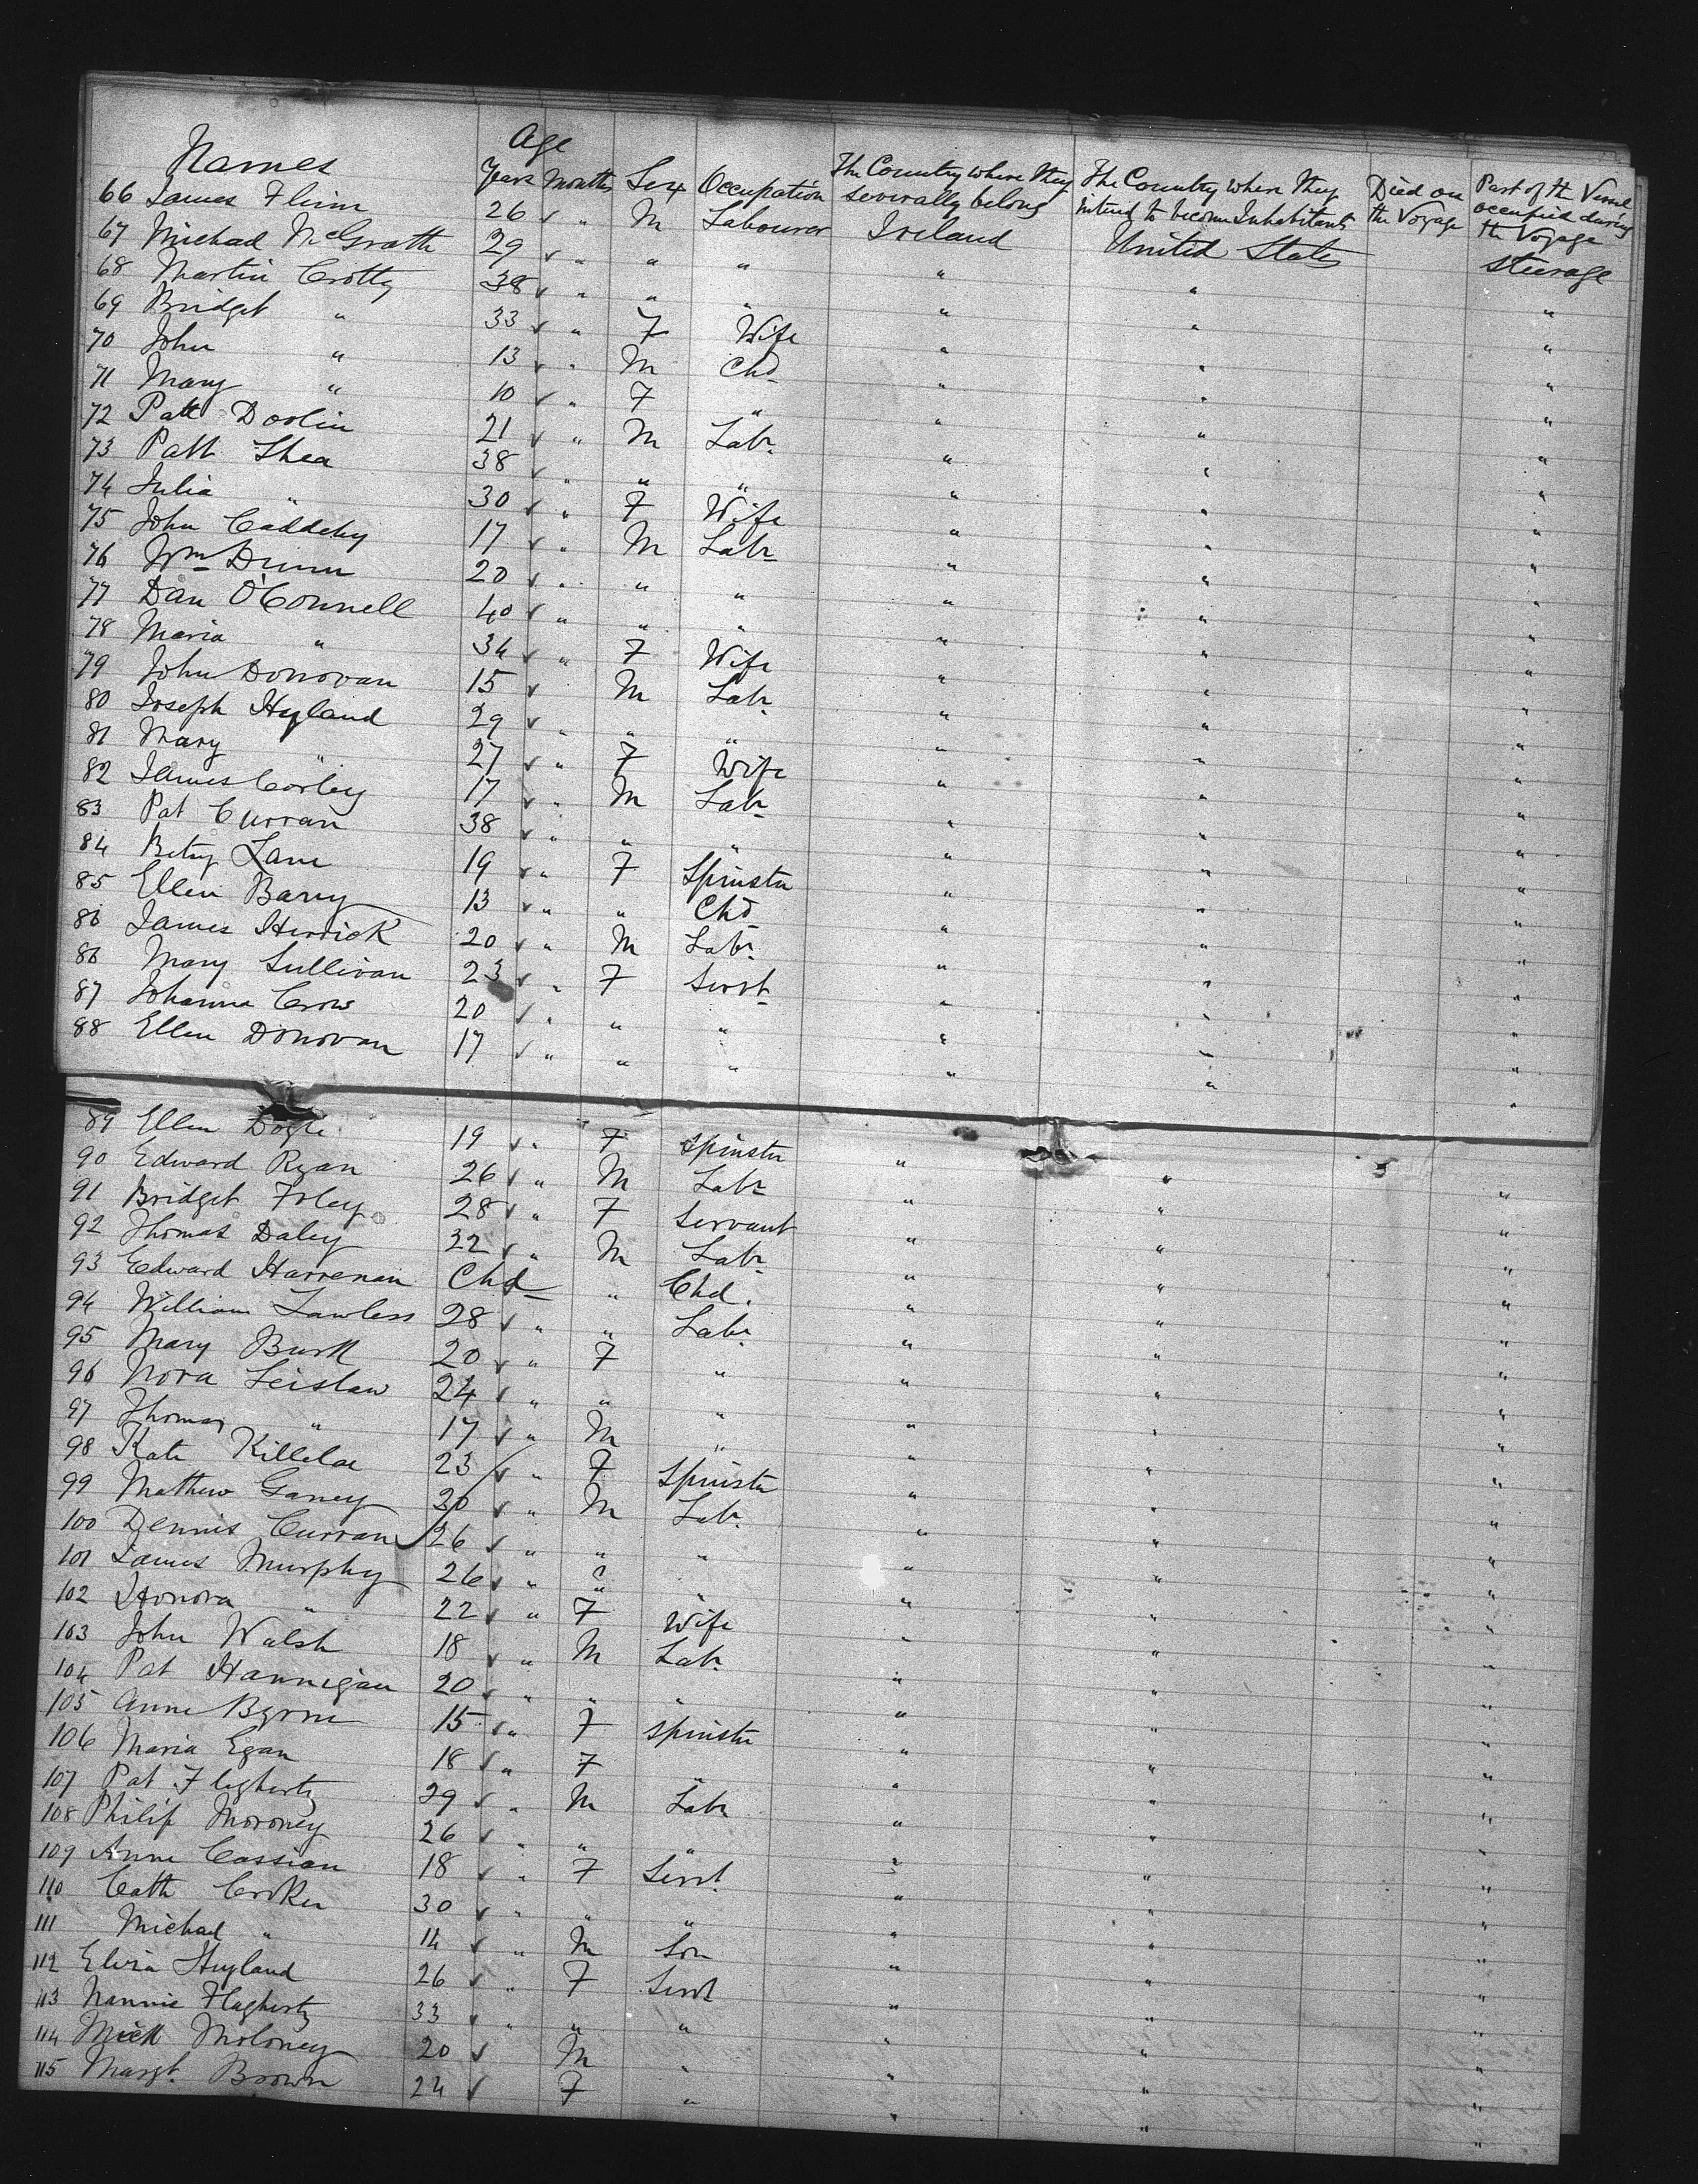 Names Age Years Months Sex Occupation The Country where they severally belong The Country where they intend to become Inhabitants Died on the Voyage Part of the Vessel occupied during the Voyage
66 James Flinn 26 ✓ " M Labourer Ireland United States Steerage
67 Michael McGrath 29 ✓ " " " " " "
68 Martin Crotty 38 ✓ " " " " " "
69 Bridget " 33 ✓ " F Wife " " "
70 John " 13 ✓ " M Chd " " "
71 Mary " 10 ✓ " F " " " "
72 Patt Doolin 21 ✓ " M Labr " " "
73 Patt Shea 38 ✓ " " " " " "
74 Julia " 30 ✓ " F Wife " " "
75 John Caddehy 17 ✓ " M Labr " " "
76 Wm Dunn 20 ✓ " " " " " "
77 Dan O'Connell 40 ✓ " " " " " "
78 Maria " 34 ✓ " F Wife " " "
79 John Donovan 15 ✓ M Labr " " "
80 Joseph Hyland 29 ✓ " " " " " "
81 Mary " 27 ✓ " F Wife " " "
82 James Corley 17 ✓ " M Labr " " "
83 Pat Curran 38 ✓ " " " " " "
84 Betsy Lane 19 ✓ " F Spinstr " " "
85 Ellen Barry 13 ✓ " " Chd " " "
86 James Herrick 20 ✓ " M Labr " " "
86 Mary Sullivan 23 ✓ " F Servt " " "
87 Johanna Crow 20 ✓ " " " " " "
88 Ellen Donovan 17 ✓ " " " " " "
89 Ellen Doyle 19 ✓ " F Spinstr " " "
90 Edward Ryan 26 ✓ " M Labr " " "
91 Bridget Foley 28 ✓ " F Servant " " "
92 Thomas Daley 32 ✓ " M Labr " " "
93 Edward Harrenan Chd " Chd. " " "
94 William Lawless 28 ✓ " " Labr " " "
95 Mary Burk 20 ✓ " F " " " "
96 Nora Leislaw 24 ✓ " " " " " "
97 Thomas " 17 ✓ " M " " " "
98 Kate Killelae 23 ✓ " F Spinstr " " "
99 Mathew Ganey 20 ✓ " M Labr " " "
100 Dennis Curran 26 ✓ " " " " " "
101 James Murphy 26 ✓ " " " " " "
102 Honora " 22 ✓ " F Wife " " "
103 John Walsh 18 ✓ " M Labr " " "
104 Pat Hannigan 20 ✓ " " " " " "
105 Anne Byrne 15 ✓ " F Spinstr " " "
106 Maria Egan 18 ✓ " F " " " "
107 Pat Flegherty 29 ✓ " M Labr " " "
108 Philip Moroney 26 ✓ " " " " " "
109 Anne Cassian 18 ✓ " F Servt " " "
110 Cath Croker 30 ✓ " " " " " "
111 Michael " 14 ✓ " M Son " " "
112 Eliza Hyland 26 ✓ " F Servt " " "
113 Nannie Flagherty 33 ✓ " " " " " "
114 Mick Moloney 20 ✓ M " " " "
115 Margt. Brown 24 ✓ F " " " "